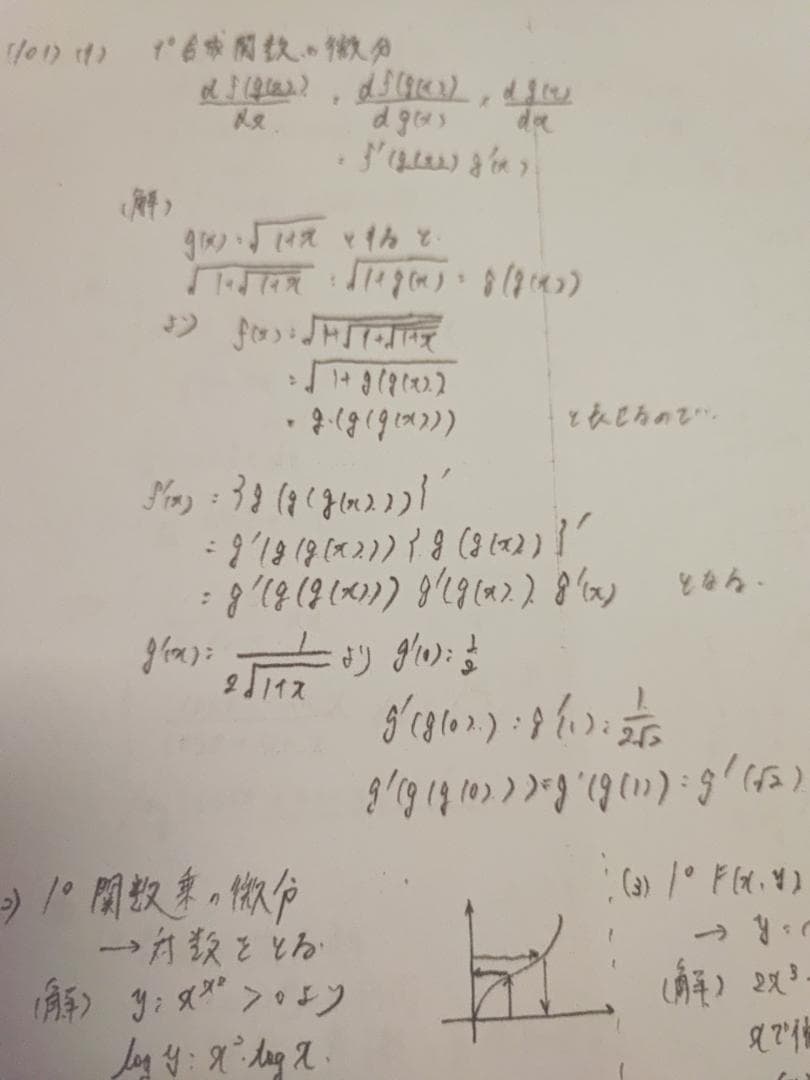 (101) (1) 1° 合成関数の微分
df(g(x))/dx = df(g(x))/dg(x) × dg(x)/dx
= f'(g(x)) g'(x)
(解)
g(x) = √(1+x) とすると
√(1+√(1+x)) = √(1+g(x)) = g(g(x))
より f(x) = √(1+√(1+√(1+x)))
= √(1+g(g(x)))
= g(g(g(x))) と表せるので…
f'(x) = {g(g(g(x)))}'
= g'(g(g(x))) {g(g(x))}'
= g'(g(g(x))) g'(g(x)) g'(x) となる.
g'(x) = 1/(2√(1+x)) より g'(0) = 1/2
g'(g(0)) = g'(1) = 1/(2√2)
g'(g(g(0))) = g'(g(1)) = g'(√2)
2) 1° 関数乗の微分
→ 対数をとる.
(解) y = x^x² > 0 より
log y = x² log x.
(3) 1° F(x, y)
→ y =
(解) 2x³
xで